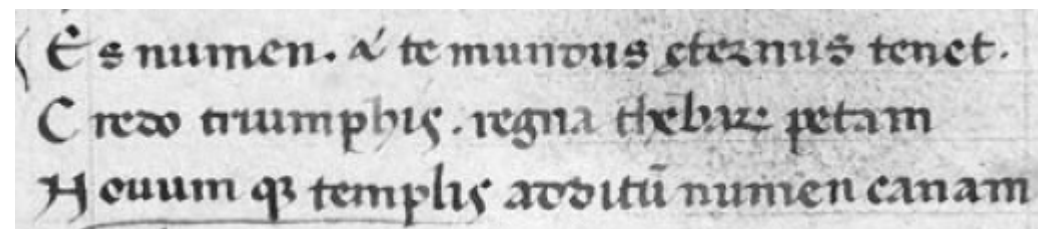 Es numen. & te mundus ęternus tenet.
Credo triumphis. regna thebaꝝ petam
Nouum qꝫ templis additū numen canam